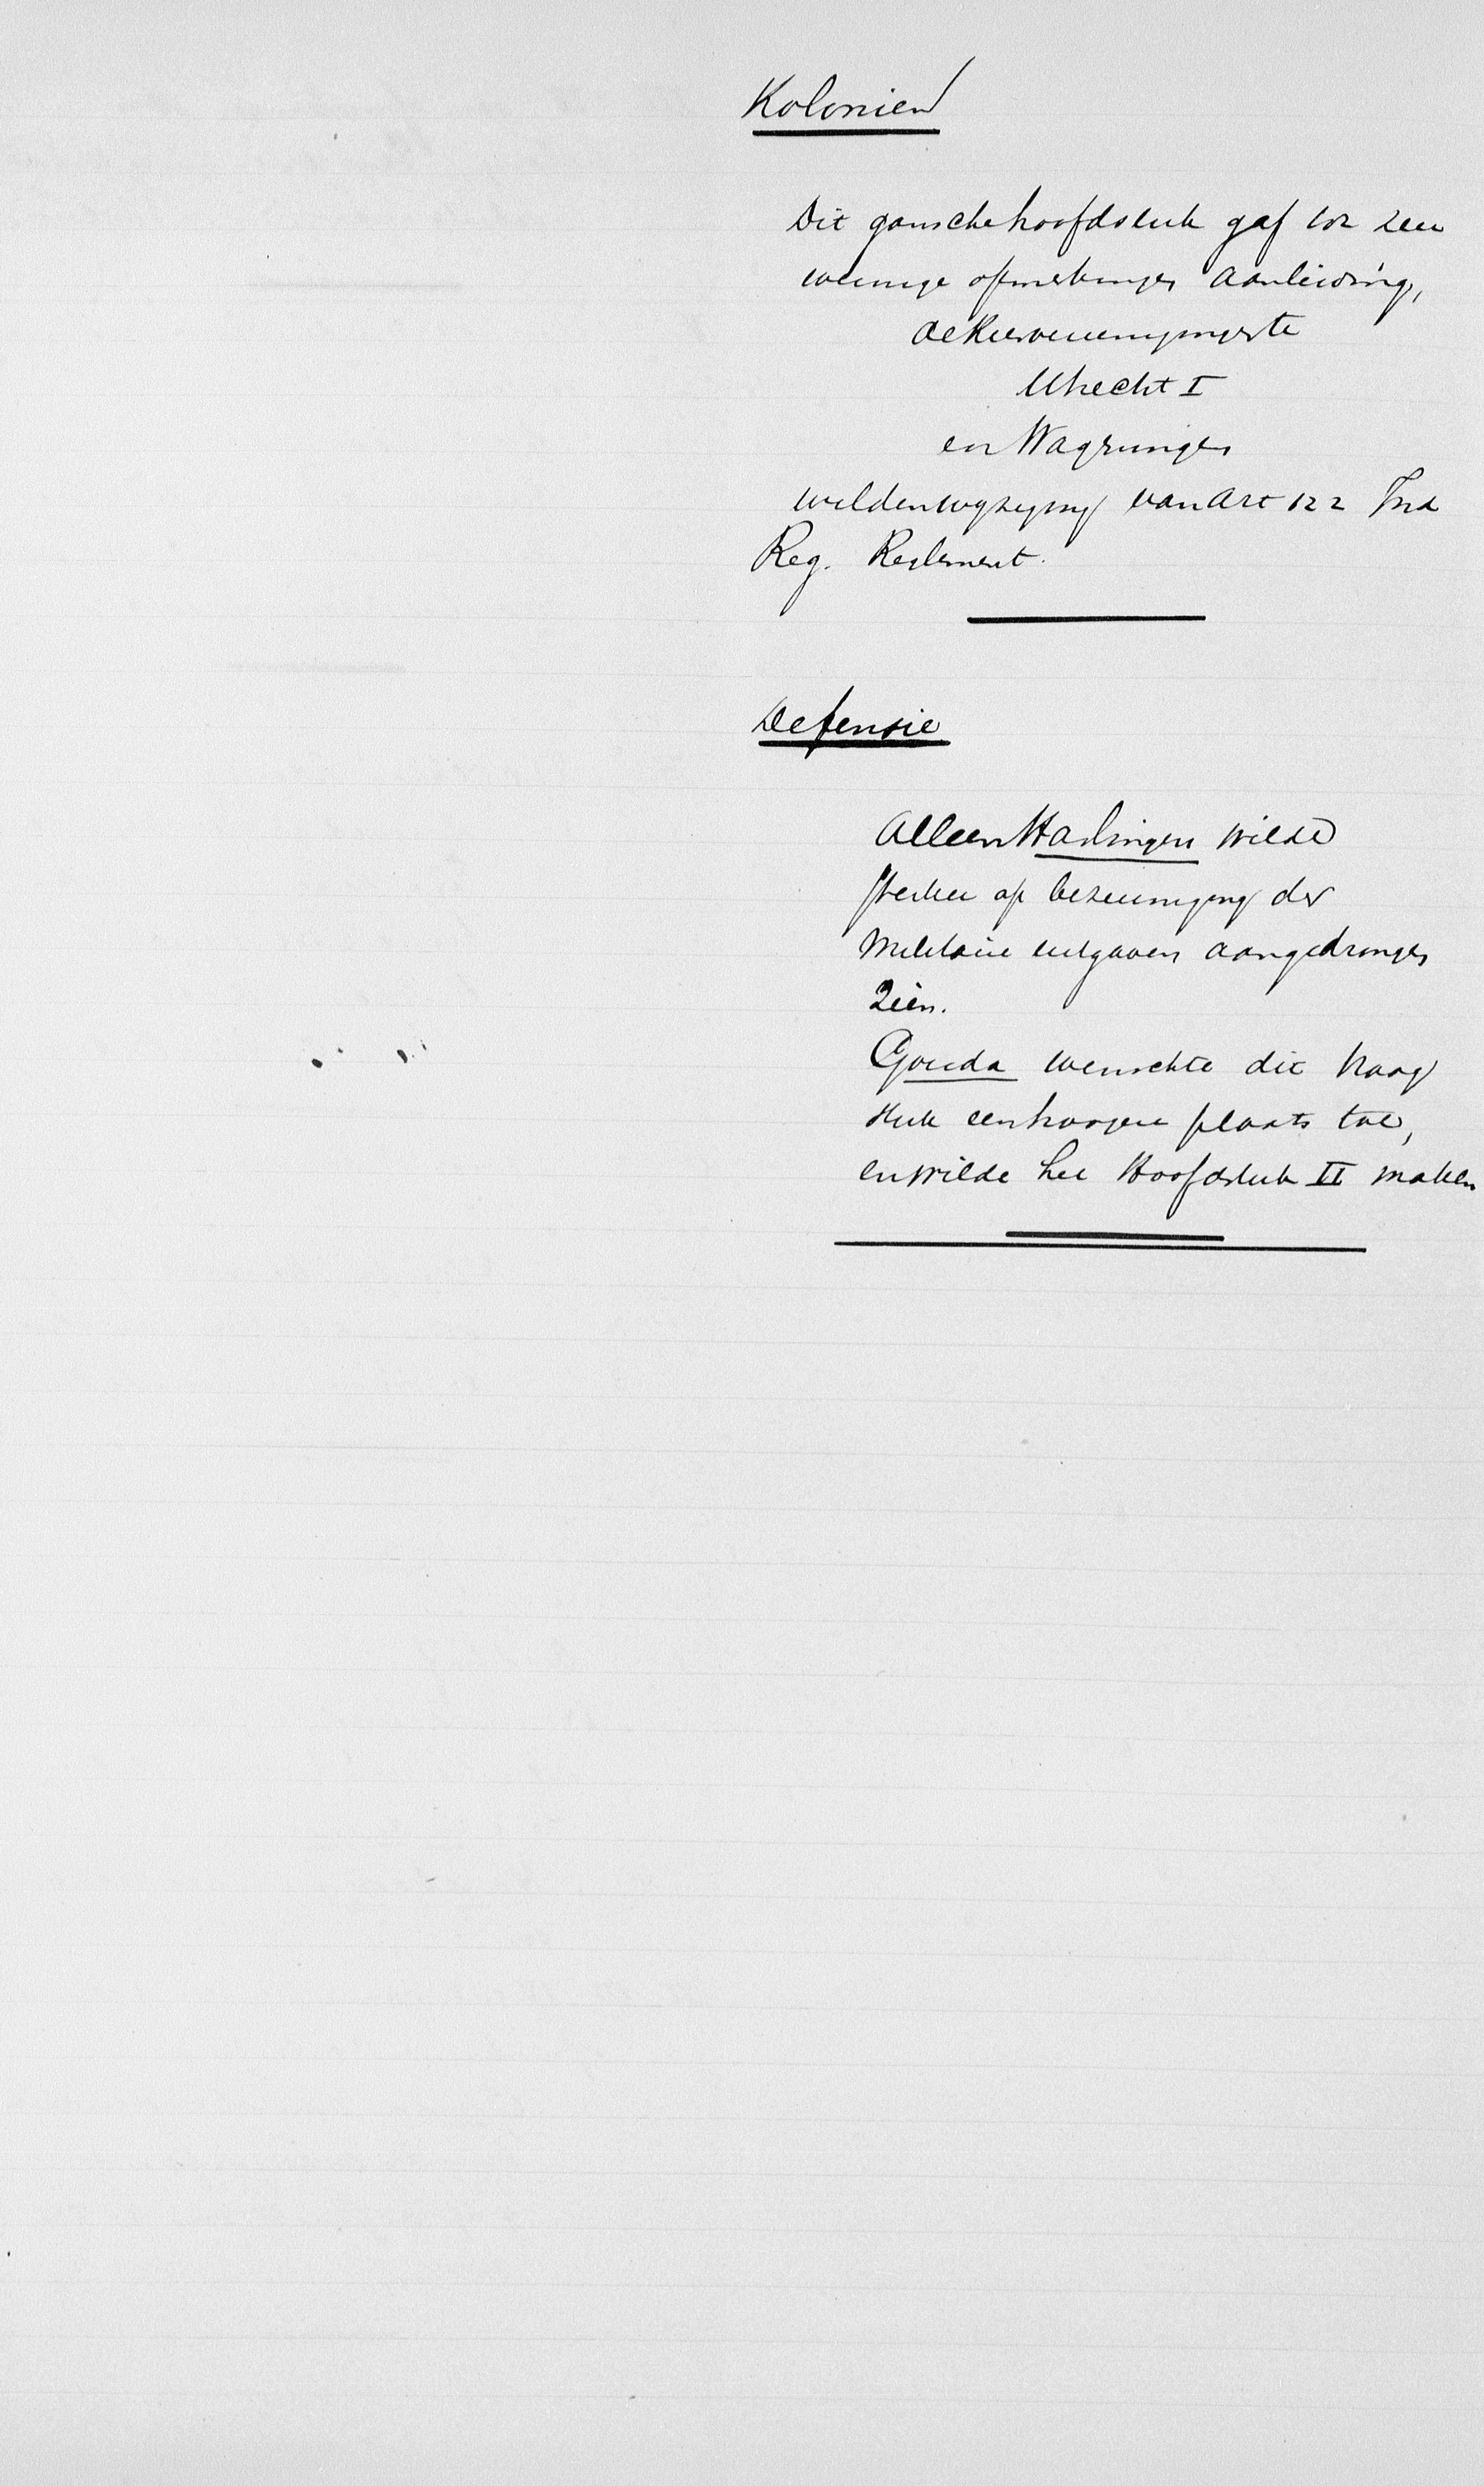 Kolonien
Dit gansche hoofdstuk gaf tot zeer
weinige opmerkingen aanleiding,
de Kiesvereenigingen te
Utrecht I
en Wageningen
wilden wijziging van Art 122 Ind
Reg. Reglement.
Defensie
Alleen Harlingen wilde
sterker op bezuiniging der
Militaire uitgaven aangedrongen
zien.
Gouda wenschte dit vraag
stuk een hoogere plaats toe,
en wilde het Hoofdstuk II maken